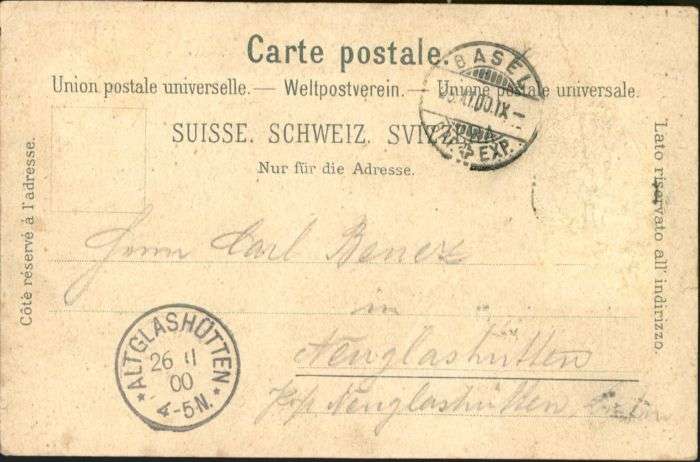 Carte postale.
Union postale universelle. — Weltpostverein. — Unione postale universale.
SUISSE. SCHWEIZ. SVIZZERA.
Nur für die Adresse.
Côté réservé à l'adresse.
Lato riservato all' indirizzo.
BASEL
EXP.
Herrn Carl Benez
in
Neuglashütten
Neuglashütten
ALTGLASHÜTTEN
26 11
00
4-5N.